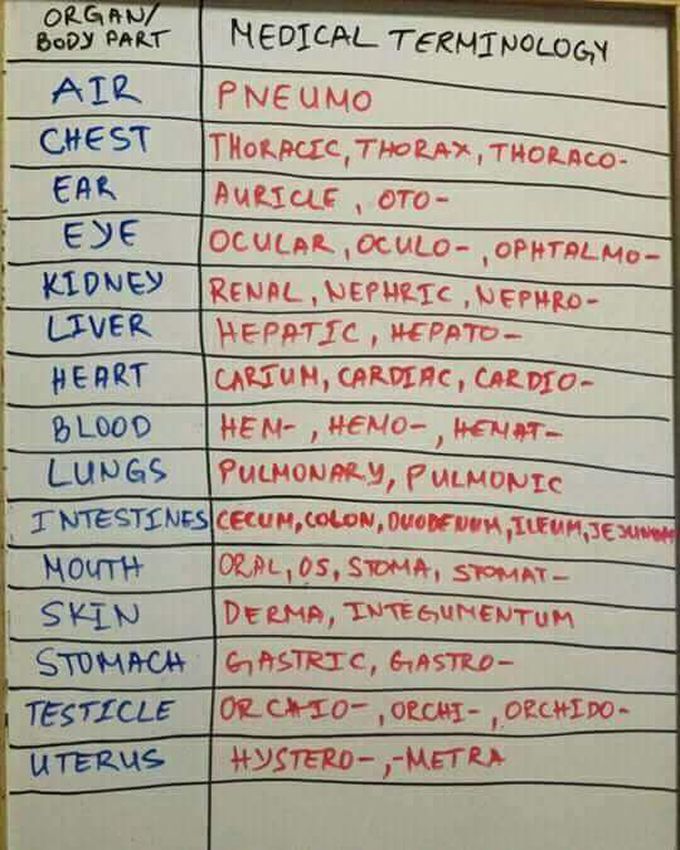 ORGAN/
BODY PART MEDICAL TERMINOLOGY
AIR PNEUMO
CHEST THORACIC, THORAX, THORACO-
EAR AURICLE, OTO-
EYE OCULAR, OCULO-, OPHTALMO-
KIDNEY RENAL, NEPHRIC, NEPHRO-
LIVER HEPATIC, HEPATO-
HEART CARIUM, CARDIAC, CARDIO-
BLOOD HEM-, HEMO-, HEMAT-
LUNGS PULMONARY, PULMONIC
INTESTINES CECUM, COLON, DUODENUM, ILEUM, JEJUNUM
MOUTH ORAL, OS, STOMA, STOMAT-
SKIN DERMA, INTEGUMENTUM
STOMACH GASTRIC, GASTRO-
TESTICLE ORCHIO-, ORCHI-, ORCHIDO-
UTERUS HYSTERO-, -METRA